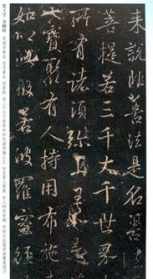 来說非善法是名善法
菩提若三千大千世界
所有諸須弥山王如是
七寶聚有人持用布施
如以此般若波羅蜜經